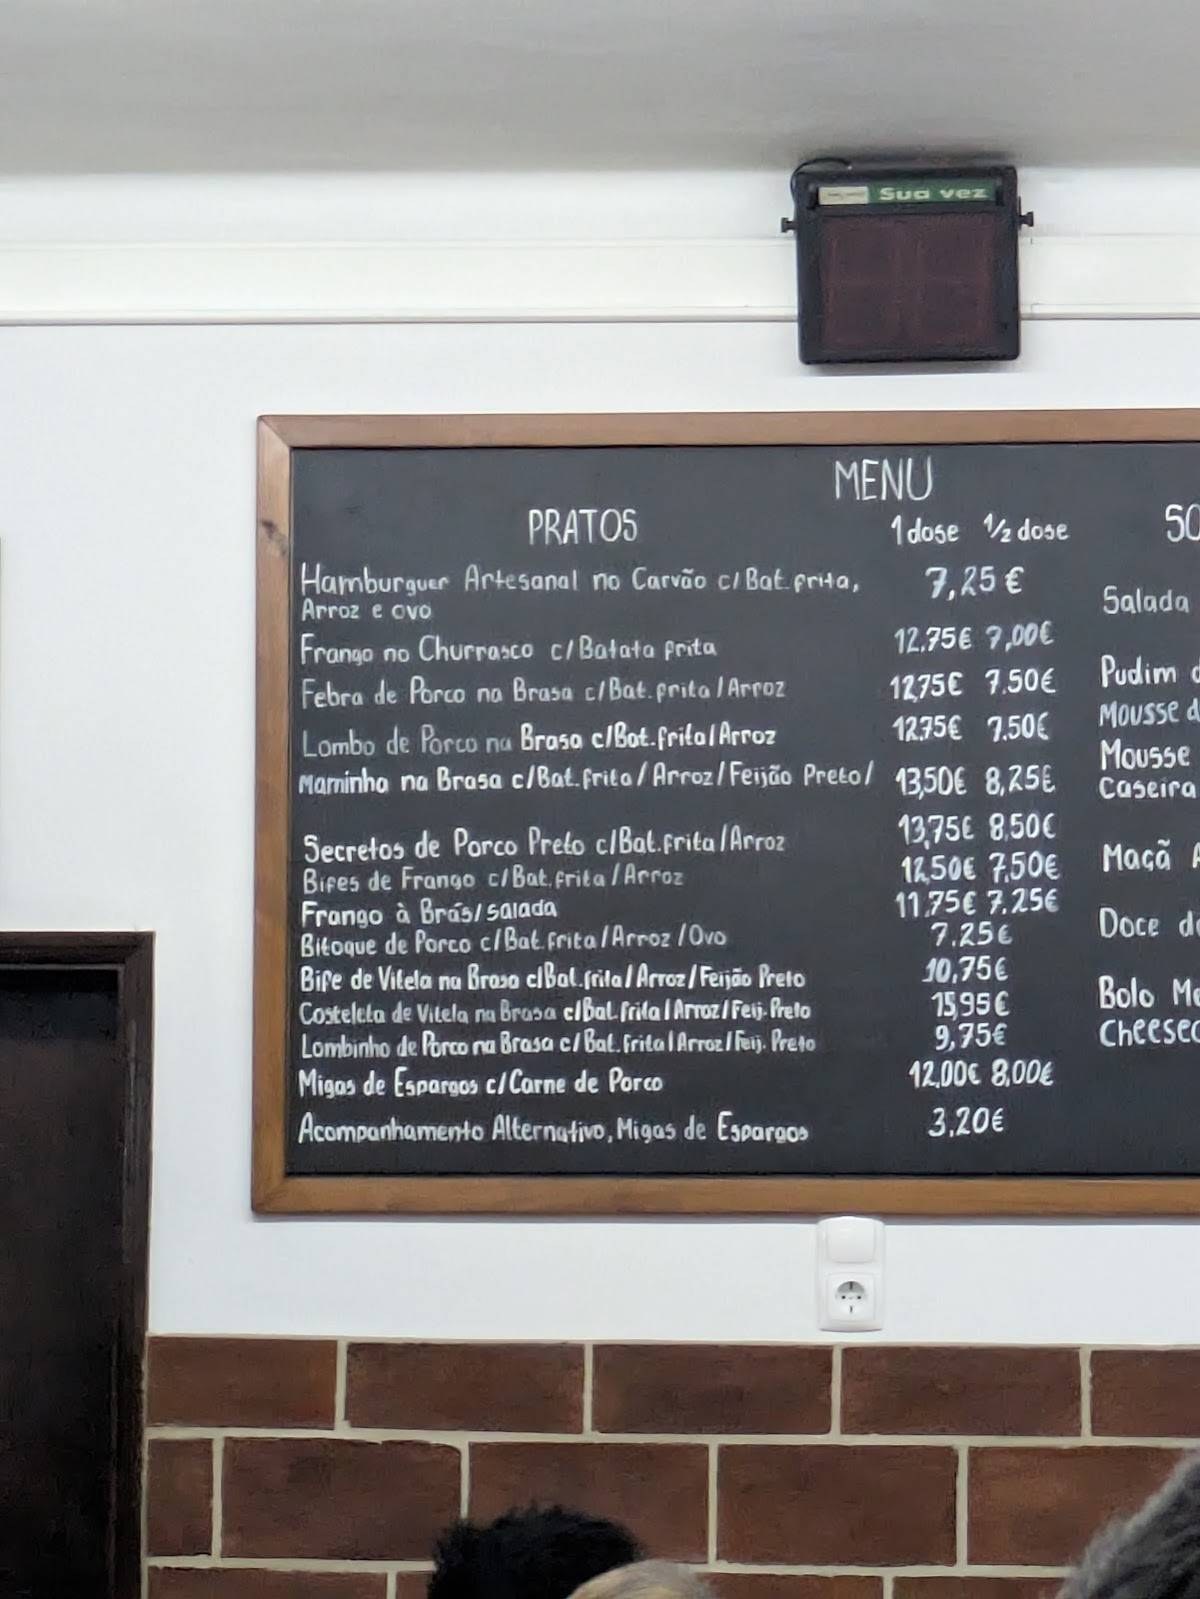 Sua vez
MENU
PRATOS 1 dose 1/2 dose
Hamburguer Artesanal no Carvão c/Bat.frita, 7,25€
Arroz e ovo
Frango no Churrasco c/Batata frita 12.75€ 7,00€
Febra de Porco na Brasa c/Bat.frita/Arroz 12,75€ 7.50€
Lombo de Porco na Brasa c/Bat.frita/Arroz 12.75€ 7.50€
Maminha na Brasa c/Bat.frita/Arroz/Feijão Preto/ 13,50€ 8,25€
Secretos de Porco Preto c/Bat.frita/Arroz 13,75€ 8,50€
Bifes de Frango c/Bat.frita/Arroz 12,50€ 7,50€
Frango à Brás/salada 11.75€ 7.25€
Bitoque de Porco c/Bat.frita/Arroz/Ovo 7.25€
Bife de Vitela na Brasa c/Bat.frita/Arroz/Feijão Preto 10,75€
Costeleta de Vitela na Brasa c/Bat.frita/Arroz/Feij.Preto 15,95€
Lombinho de Porco na Brasa c/Bat.frita/Arroz/Feij.Preto 9,75€
Migas de Espargos c/Carne de Porco 12,00€ 8,00€
Acompanhamento Alternativo, Migas de Espargos 3,20€
SO
Salada
Pudim d
Mousse d
Mousse
Caseira
Maçã A
Doce do
Bolo Me
Cheesec